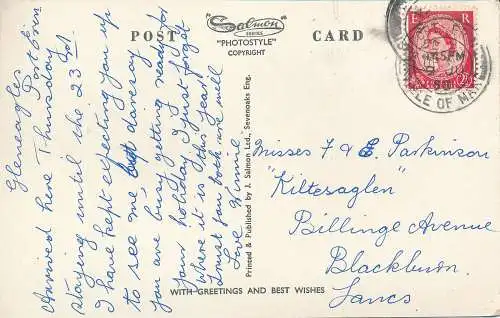 POST
Salmon
SERIES
"PHOTOSTYLE"
COPYRIGHT
CARD
E R
2½
ISLE OF MAN
Gleneagles
Port Erin
Thursday
Arrived here
staying until the 23rd.
I have kept expecting you up
to see me but
you are busy getting ready for
your holiday, I just forget
where it is this year!
Trust you both are well
Love Winnie
Printed & Published by J. Salmon Ltd., Sevenoaks Eng.
Misses F & E. Parkinson
"Kiltesaglen"
Billinge Avenue
Blackburn
Lancs
WITH GREETINGS AND BEST WISHES